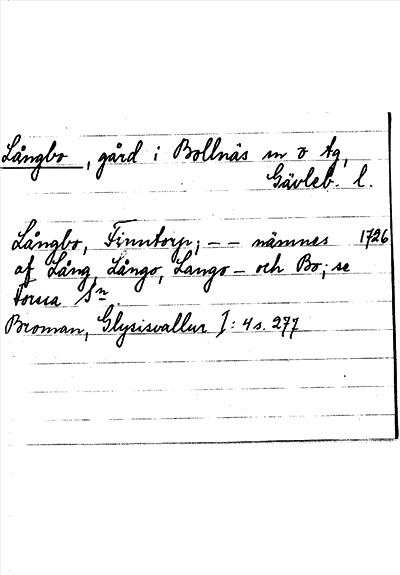 Långbo, gård i Bollnäs sn o tg,
Gävleb. l.
Långbo, Finntorp; – – nämnes 1726
af Lång, Långo, Lango – och Bo; se
torssa Sn
Broman, Glysisvallur I: 4 s. 277